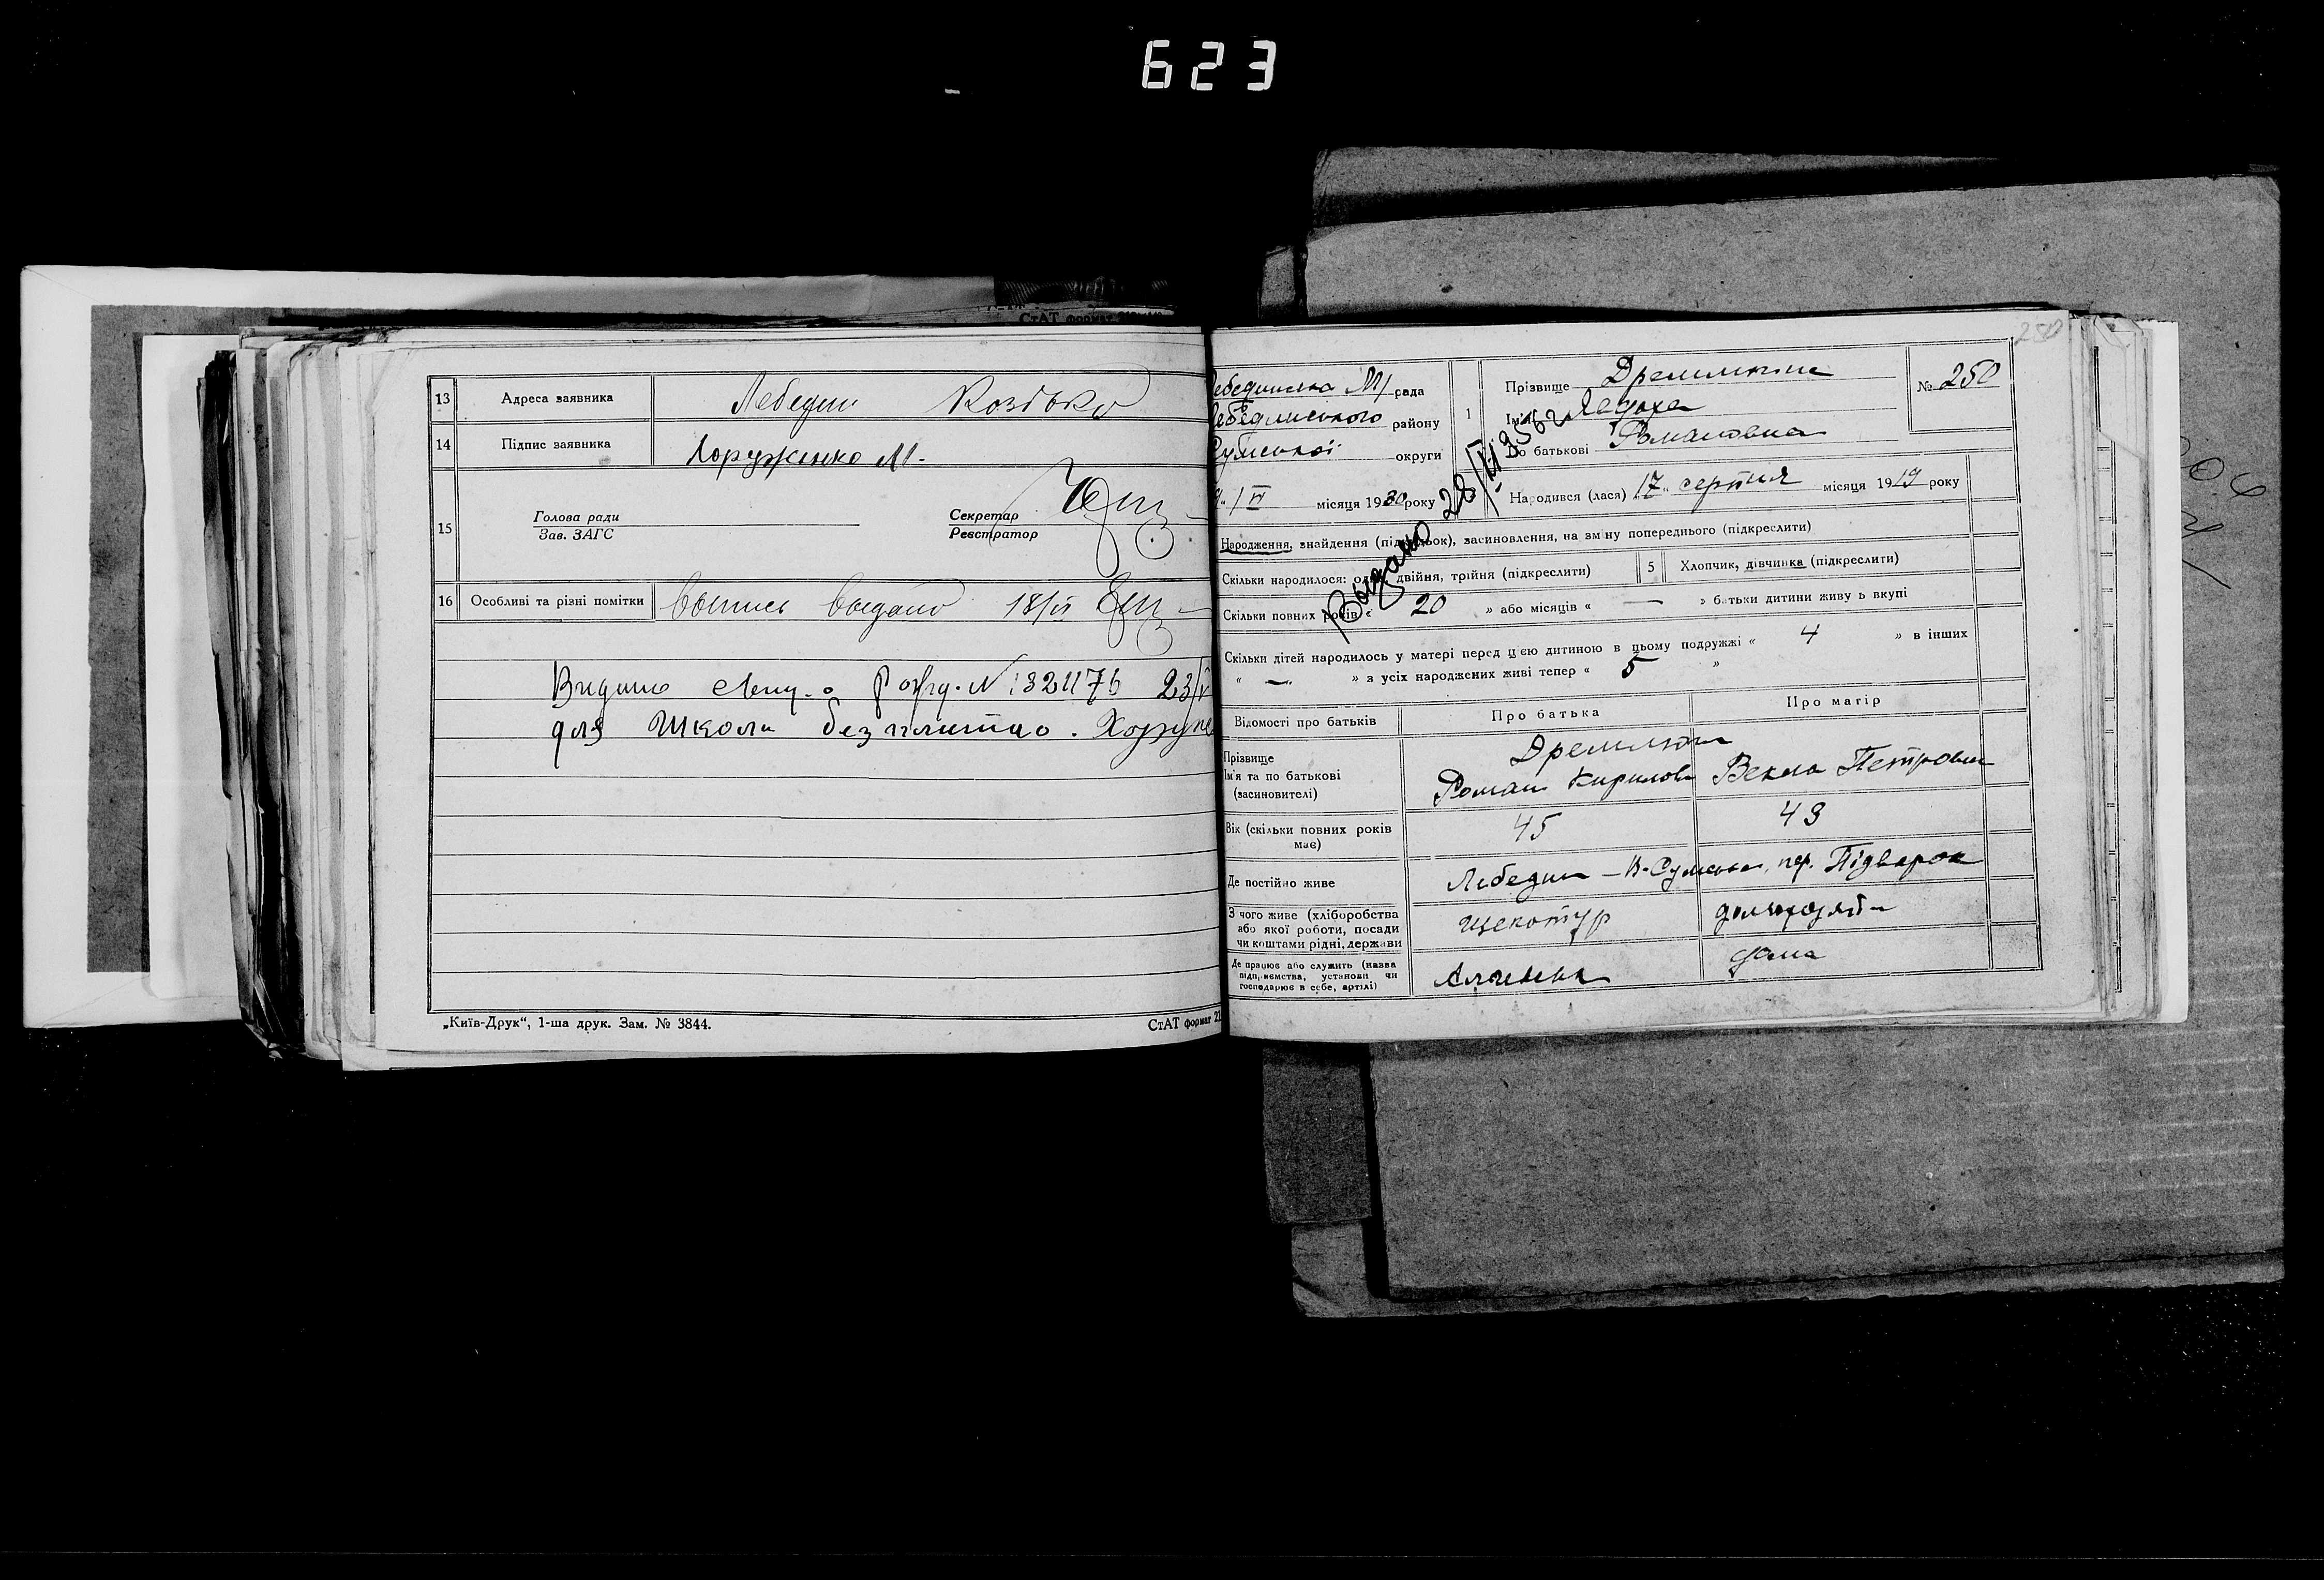 623
СтАТ формат
13 Адреса заявника Лебедин Козівко
14 Підпис заявника Хоруженко М.
15 Голова ради
Зав. ЗАГС
Секретар
Реєстратор
16 Особливі та різні помітки выпись выдано 18/IV
Видано свид. о рожд. N 1321176 23/V
для школи безплатно.
„Київ-Друк“, 1-ша друк. Зам. № 3844.
СтАТ формат
250
Лебединська М/рада
Лебединського району
Сумської округи
/VI місяця 1930 року
1 Прізвище
Ім'я
По батькові Романовна
№ 250
Народився (лася) 17 серпня місяця 1919 року
Выдано 28/III 1956 г
Народження, знайдення (підкидьок), засиновлення, на зміну попереднього (підкреслити)
Скільки народилося: одн двійня, трійня (підкреслити) 5 Хлопчик, дівчинка (підкреслити)
Скільки повних років « 20 » або місяців « — » батьки дитини живуть вкупі
Скільки дітей народилось у матері перед цією дитиною в цьому подружжі « 4 » в інших
« — » з усіх народжених живі тепер « 5 »
Відомості про батьків Про батька Про матір
Прізвище
Ім'я та по батькові
(засиновителі)
Роман Кирилов Векла Петровна
Вік (скільки повних років
має)
45 43
Де постійно живе Лебедин – В-Сумська, пер. Підварок
З чого живе (хліборобства
або якої роботи, посади
чи коштами рідні, держави
щекотур домохазяйка
Де працює або служить (назва
підприємства, установи чи
господарює в себе, артілі)
дома